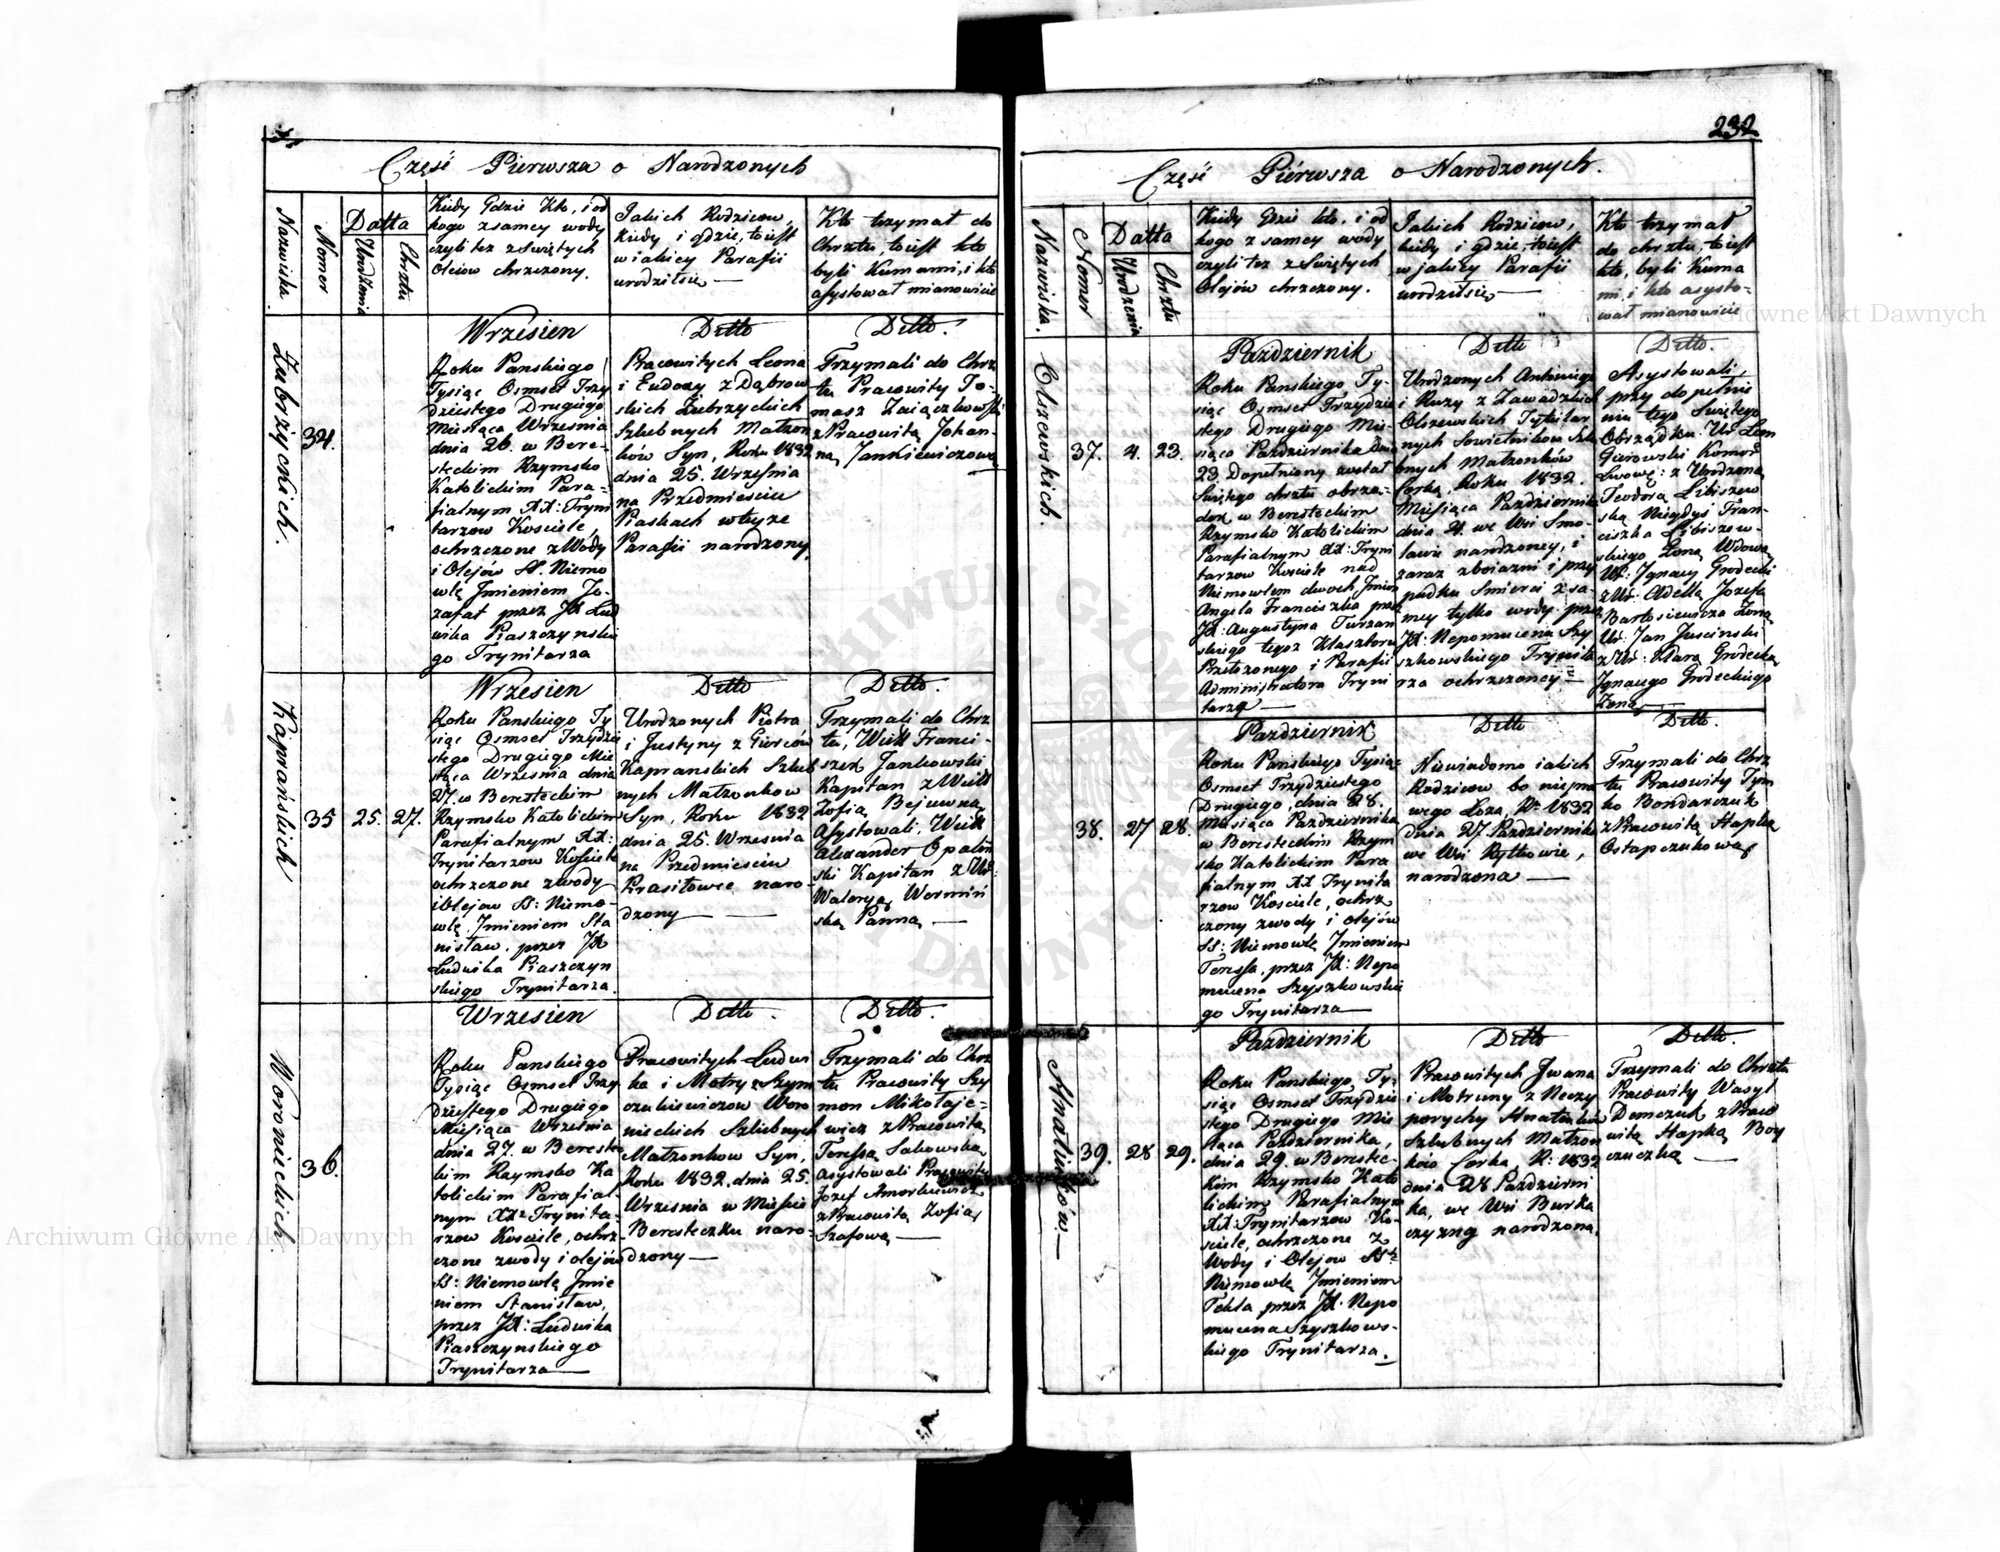 Część Pierwsza o Narodzonych
Nazwiska
Nomer
Datta
Urodzenia
Chrztu
Kiedy Gdzie Kto, i od
kogo z samey wody
czyli też z Swiętych
Oleiow chrzczony.
Jakich Rodzicow,
Kiedy i gdzie, to iest
w iakiey Parafii
urodził się —
Kto trzymał do
Chrztu to iest kto
byli Kumami, i kto
asystował mianowicie
Zubrzyckich.
34.
Wrzesien
Roku Panskiego
Tysiąc Osmset Trzy
dziestego Drugiego
Miesiąca Wrzesnia
dnia 26. w Bere-
steckim Rzymsko
Katolickim Para-
fialnym XX: Tryni
tarzow Kosciele,
ochrzczone z Wody
i Olejów S. Niemo
wlę Jmieniem Jo-
zafat przez JX Lud
wika Piaszczynskie
go Trynitarza
Ditto
Pracowitych Leona
i Eudoxy z Dąbrow
skich Zubrzyckich
Szlubnych Małżon
ków Syn, Roku 1832
dnia 25. Wrzesnia
na Przedmiesciu
Piaskach w teyże
Parafii narodzony,
Ditto.
Trzymali do Chrz
tu Pracowity To-
masz Zaiączkowski
z Pracowitą Johan-
ną Jankiewiczową
Kaprańskich
35
25.
27.
Wrzesien
Roku Panskiego Ty
siąc Osmset Trzydzie
stego Drugiego Mie
siąca Wrzesnia dnia
27. w Beresteckim
Rzymsko Katolickim
Parafialnym XX:
Trynitarzow Kosciele
ochrzczone z wody
i Olejow S: Niemo-
wlę Jmieniem Sta
nisław, przez JX
Ludwika Piaszczyn
skiego Trynitarza.
Ditto
Urodzonych Piotra
i Justyny z Giercow
Kapranskich Szlub
nych Małzonkow
Syn, Roku 1832
dnia 25. Wrzesnia
na Przedmiesciu
Krasiłowce naro-
dzony —
Ditto.
Trzymali do Chrz
tu, Franci-
szek Jankowski
Kapitan z
Zofią Bejewną,
Asystowali,
Alexander Opalin
ski Kapitan z Ur:
Waleryą Wormiń
ską Panną —
Woronieckich.
36.
Wrzesien
Roku Panskiego
Tysiąc Osmset Trzy
dziestego Drugiego
Miesiąca Wrzesnia
dnia 27. w Berestec
kim Rzymsko Ka
tolickim Parafial-
nym XX: Trynita-
rzow Kosciele, ochrz-
czone z wody i olejów
SS: Niemowlę Jmie
niem Stanisław,
przez JX: Ludwika
Piaszczynskiego
Trynitarza —
Ditto
Pracowitych Ludwi
ka i Motry z Szym
czukiewiczow Woro
nieckich Szlubnych
Matzonkow Syn,
Roku 1832. dnia 25.
Wrzesnia w Miescie
Beresteczku naro-
dzony —
Ditto.
Trzymali do Chrz
tu Pracowity Szy
mon Mikołaje-
wicz z Pracowitą
Teressą Sakowską,
asystowali Pracowity
Jozef Amorkiewicz
z Pracowitą Zofią
Szafową —
232
Część Pierwsza o Narodzonych.
Nazwiska.
Nomer
Datta
Urodzenia
Chrztu
Kiedy Gdzie kto, i od
kogo z samey wody
czyli też z Swiętych
Olejów chrzczony.
Jakich Rodzicow,
kiedy i gdzie, to iest
w jakiey Parafii
urodził się —
Kto trzymał
do chrztu, to iest
kto, byli Kuma
mi, i kto asysto-
wał mianowicie
Olszewskich.
37.
4.
23.
Pazdziernik
Roku Panskiego Ty-
siąc Osmset Trzydzie
stego Drugiego Mie
siąca Pazdziernika dnia
23. Dopełniony został
Swiętego chrztu obrzą-
dek w Beresteckim
Rzymsko Katolickim
Parafialnym XX: Tryni
tarzow Kosciele nad
Niemowlem dwoch Jmion
Angela Franciszka przez
JX: Augustyna Turzan
skiego tegoż Klasztoru
Przełożonego i Parafii
Administratora Tryni
tarza —
Ditto
Urodzonych Antoniego
i Ruzy z Zawadzkich
Olszewskich Tytular
nych Sowietnikow Szlu
bnych Matzonków
Corka, Roku 1832.
Miesiąca Pazdziernika
dnia 4. we Wsi Smo-
lawie narodzoney, i
zaraz z boiazni i przy
padku smierci z sa-
mey tylko wody przez
JX: Nepomucena Szy
szkowskiego Trynita
rza ochrzczoney —
Ditto.
Asystowali,
przy dopełnie
niu tego Swiętego
Obrządku. Ur. Leon
Gierowski Komor
z Urodzoną
Teodorą Libiszew
ską Niegdyś Fran-
ciszka Libiszew-
skiego Zoną Wdową,
Ur: Jgnacy Grodecki
z Ur: Adellą Jozefa
Bartosiewicza Zoną
Ur: Jan Juscinski
z Ur: Klarą Grodecką
Jgnacego Grodeckiego
Zoną —
38.
27
28.
Pazdziernik
Roku Panskiego Tysiąc
Osmset Trzydziestego
Drugiego, dnia 28.
Miesiąca Pazdziernika
w Beresteckim Rzym
sko Katolickim Para
fialnym XX Trynita
rzow Kosciele, ochrz
czony z wody i olejów
SS: Niemowlę Jmieniem
Teressa, przez JX: Nepo
mucena Szyszkowskie
go Trynitarza —
Ditto
Niewiadomo iakich
Rodzicow bo niepra
wego Łoza, R: 1832
dnia 27. Pazdziernika
we Wsi Rytkowie,
narodzona —
Ditto.
Trzymali do Chrz
tu Pracowity Tym
ko Bondarczuk
z Pracowitą Hapką
Ostapczukową
Hnatiuków —
39.
28
29.
Pazdziernik
Roku Panskiego Ty-
siąc Osmset Trzydzie
stego Drugiego Mie-
siąca Pazdziernika,
dnia 29. w Berestec-
kim Rzymsko Kato
lickim Parafialnym
XX: Trynitarzow Ko-
sciele, ochrzczone z
Wody i Olejow SS:
Niemowlę Jmieniem
Tekla przez JX: Nepo
mucena Szyszkows-
kiego Trynitarza.
Ditto
Pracowitych Jwana
i Motruny z Neczy
porychy Hnatiukow
Szlubnych Matzon
ków Corka R: 1832
dnia 28 Pazdzierni
ka, we Wsi Burka
czyzną narodzona.
Ditto.
Trzymali do Chrztu
Pracowity Wasyl
Demczuk z Praco
witą Hapką Boy
czuczką —
Archiwum Główne Akt Dawnych